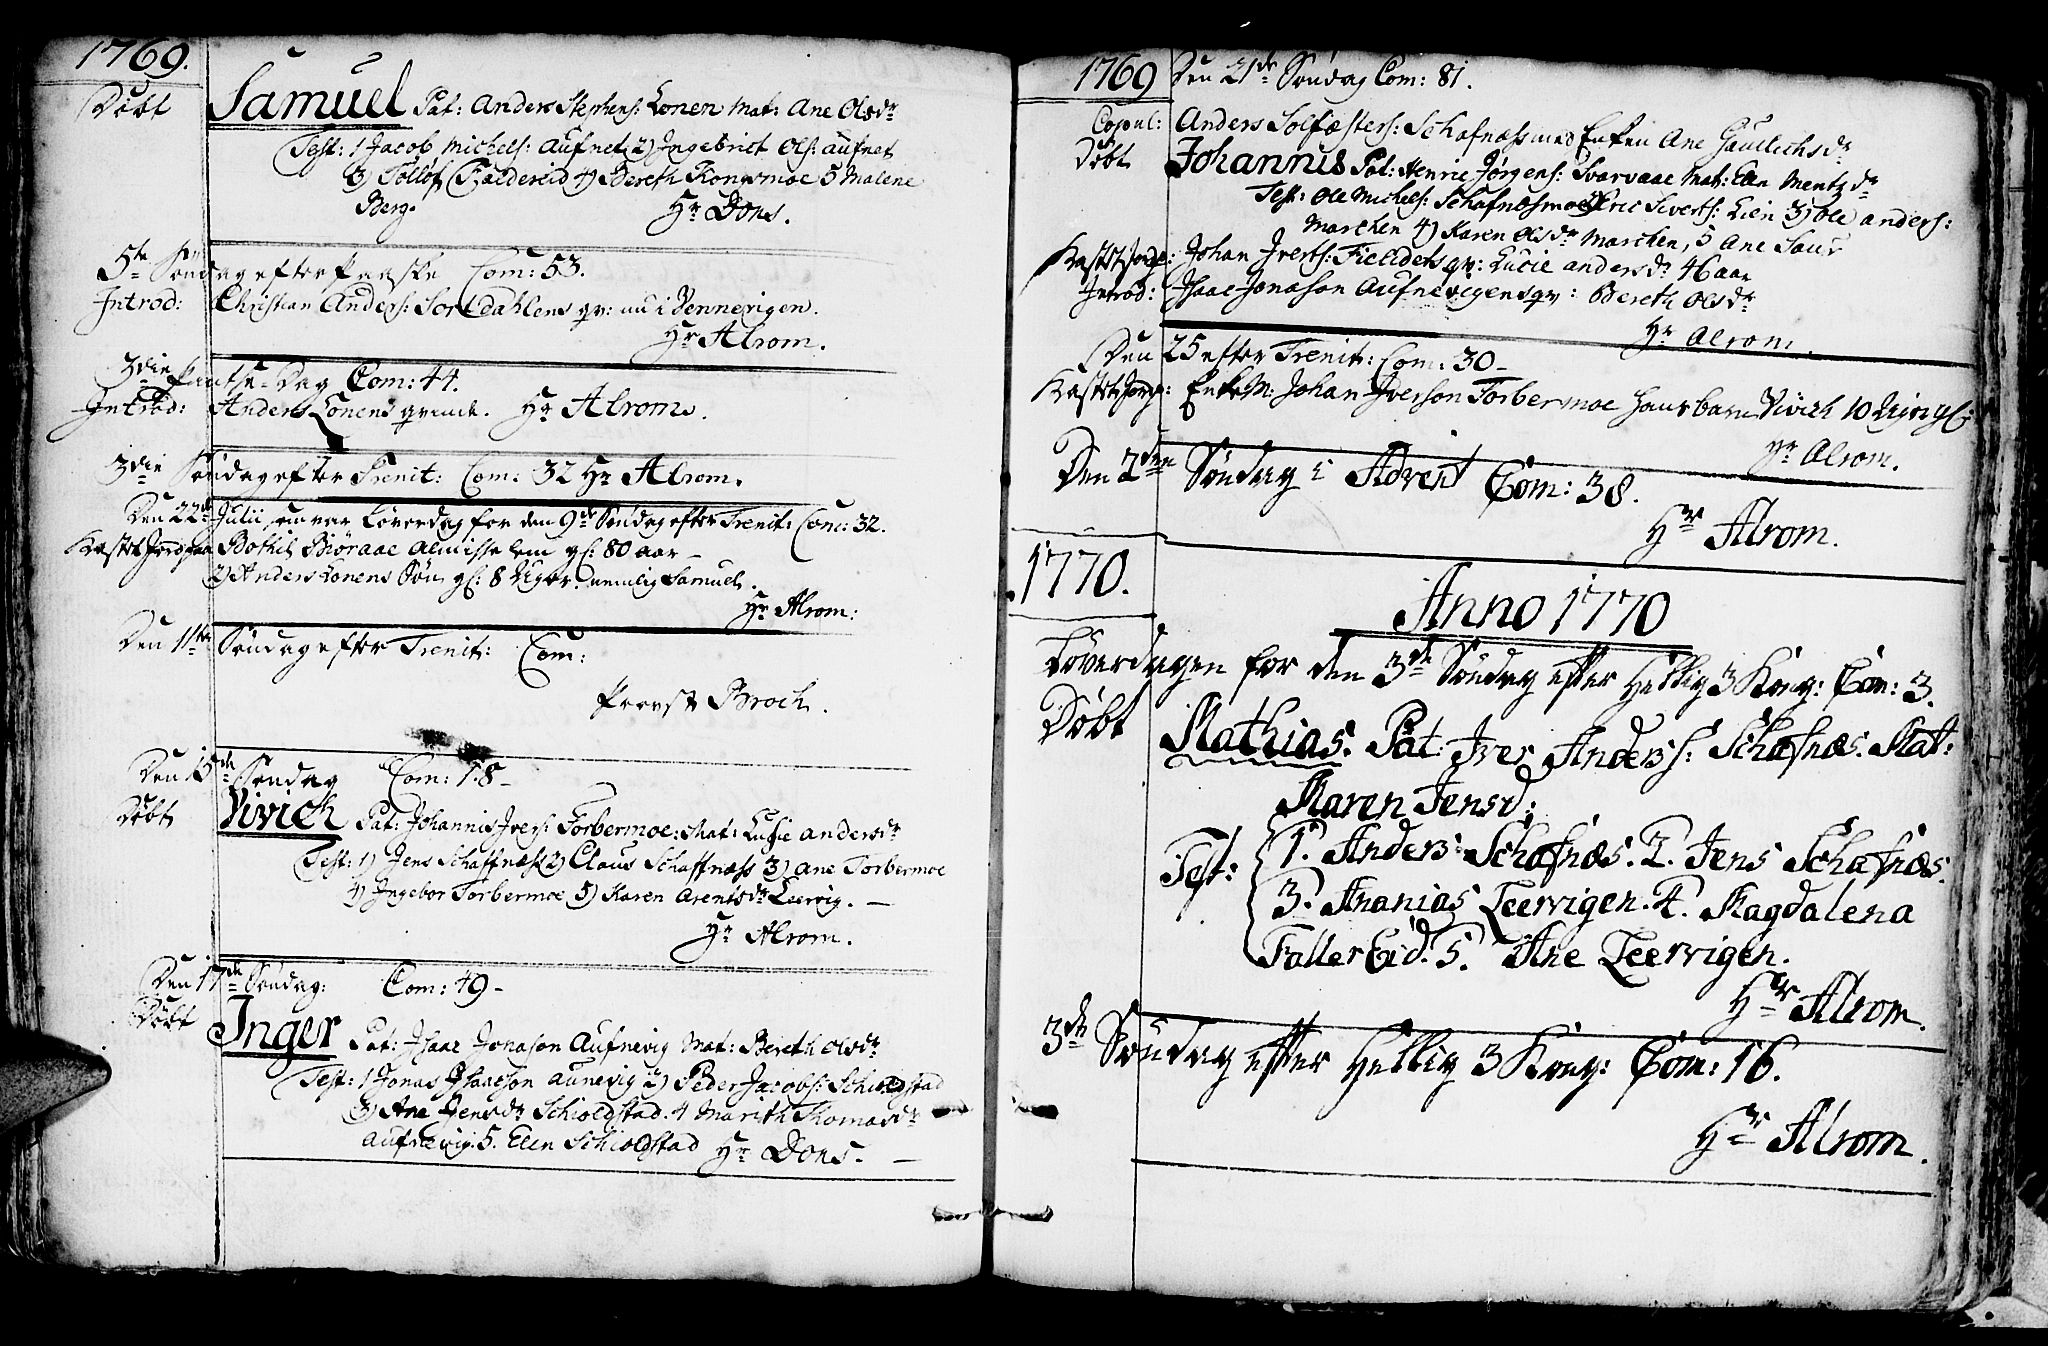 1769.
Døbt Samuel Pat: Anders Stephens: Lonen Mat: Ane Olsdr
Test: 1 Jacob Michels: Aufnet 2) Ingebrict Ols: aufnet
3) Tollof Fældereid 4) Bereth Konsmoe 5 Malene
Berg. Hr Dons.
5te Søndag efter Paaske Com: 53.
Introd: Christian Anders: Sortdahlens qv: nu i Vennevigen.
Hr Alrom.
3die Paatske-Dag Com: 44.
Introd: Anders Lonens qvinde. Hr Alrom.
3die Søndag efter Trenit: Com: 32 Hr Alrom.
Den 22de Julii, som var Løverdag for den 9de Søndag efter Trenit: Com: 32.
Kastet Jord paa Bothil Biøraae Almisse lem gl: 80 aar –
2) Anders Lonens Søn gl: 8 Uger. nemlig Samuel.
Hr Alrom:
Den 11te Søndag efter Trenit: Com:
Provst Broch.
Den 15de Søndag Com: 18 –
Døbt Vivich Pat: Johannis Ivers: Forbermoe: Mat: Lucie andersdr
Test: 1) Jens Schaffnæss 2) Claus Schaffnæss 3) Ane Forbermoe
4) Ingebor Forbermoe 5) Karen Arentsdr Leervig. –
Hr Alrom.
Den 17de Søndag: Com: 49 –
Døbt Inger Pat: Isaac Jonason Aufnevig Mat: Bereth Olsdr
Test: 1 Jonas Isaacson aunevig 2) Peder Jacobs: Schioldstad
3) Ane Jensdr Schioldstad. 4 Marith Thomasdr
Aufnevig. 5. Elen Schioldstad Hr Dons. –
1769 Den 21de Søndag Com: 81.
Copul: Anders Solfæsters: Schafnæss med Enken Ane Gautichsdr
Døbt Johannis Pat: Henric Jørgens: Svarvaae Mat: Elen Mentzdr
Test: Ole Michels: Schafnæsmoe 2) Eric Siverts: Lien 3) Ole anders:
Marchen 4) Karen Olsdr Marchen, 5 Ane Saur
Kastet Jord: Johan Iverts: Fieldets qv: Lucie andersdr 46 aar
Introd: Isaac Jonason Aufnevigens qv: Bereth Olsdr
Hr Alrom.
Den 25 efter Trenit: Com: 30 –
Kastet Jord: Enke M: Johan Iverson Forbermoe hans barn Vivich 10 Uger gl:
Hr Alrom.
Den 2den Søndag i Advent Com: 38.
Hr Alrom.
1770.
Anno 1770
Løverdagen for den 3de Søndag efter Hellig 3 Kong: Com: 3.
Døbt Mathias. Pat: Iver Anders: Schafnæs. Mat:
Maren Jensd:
Test: 1. Anders Schafnæs. 2. Jens Schafnæs.
3. Ananias Leervigen. 4. Magdalena
FallerEid. 5. Ane Leervigen.
Hr Alrom.
3de Søndag efter Hellig 3 Kong: Com: 16.
Hr Alrom.